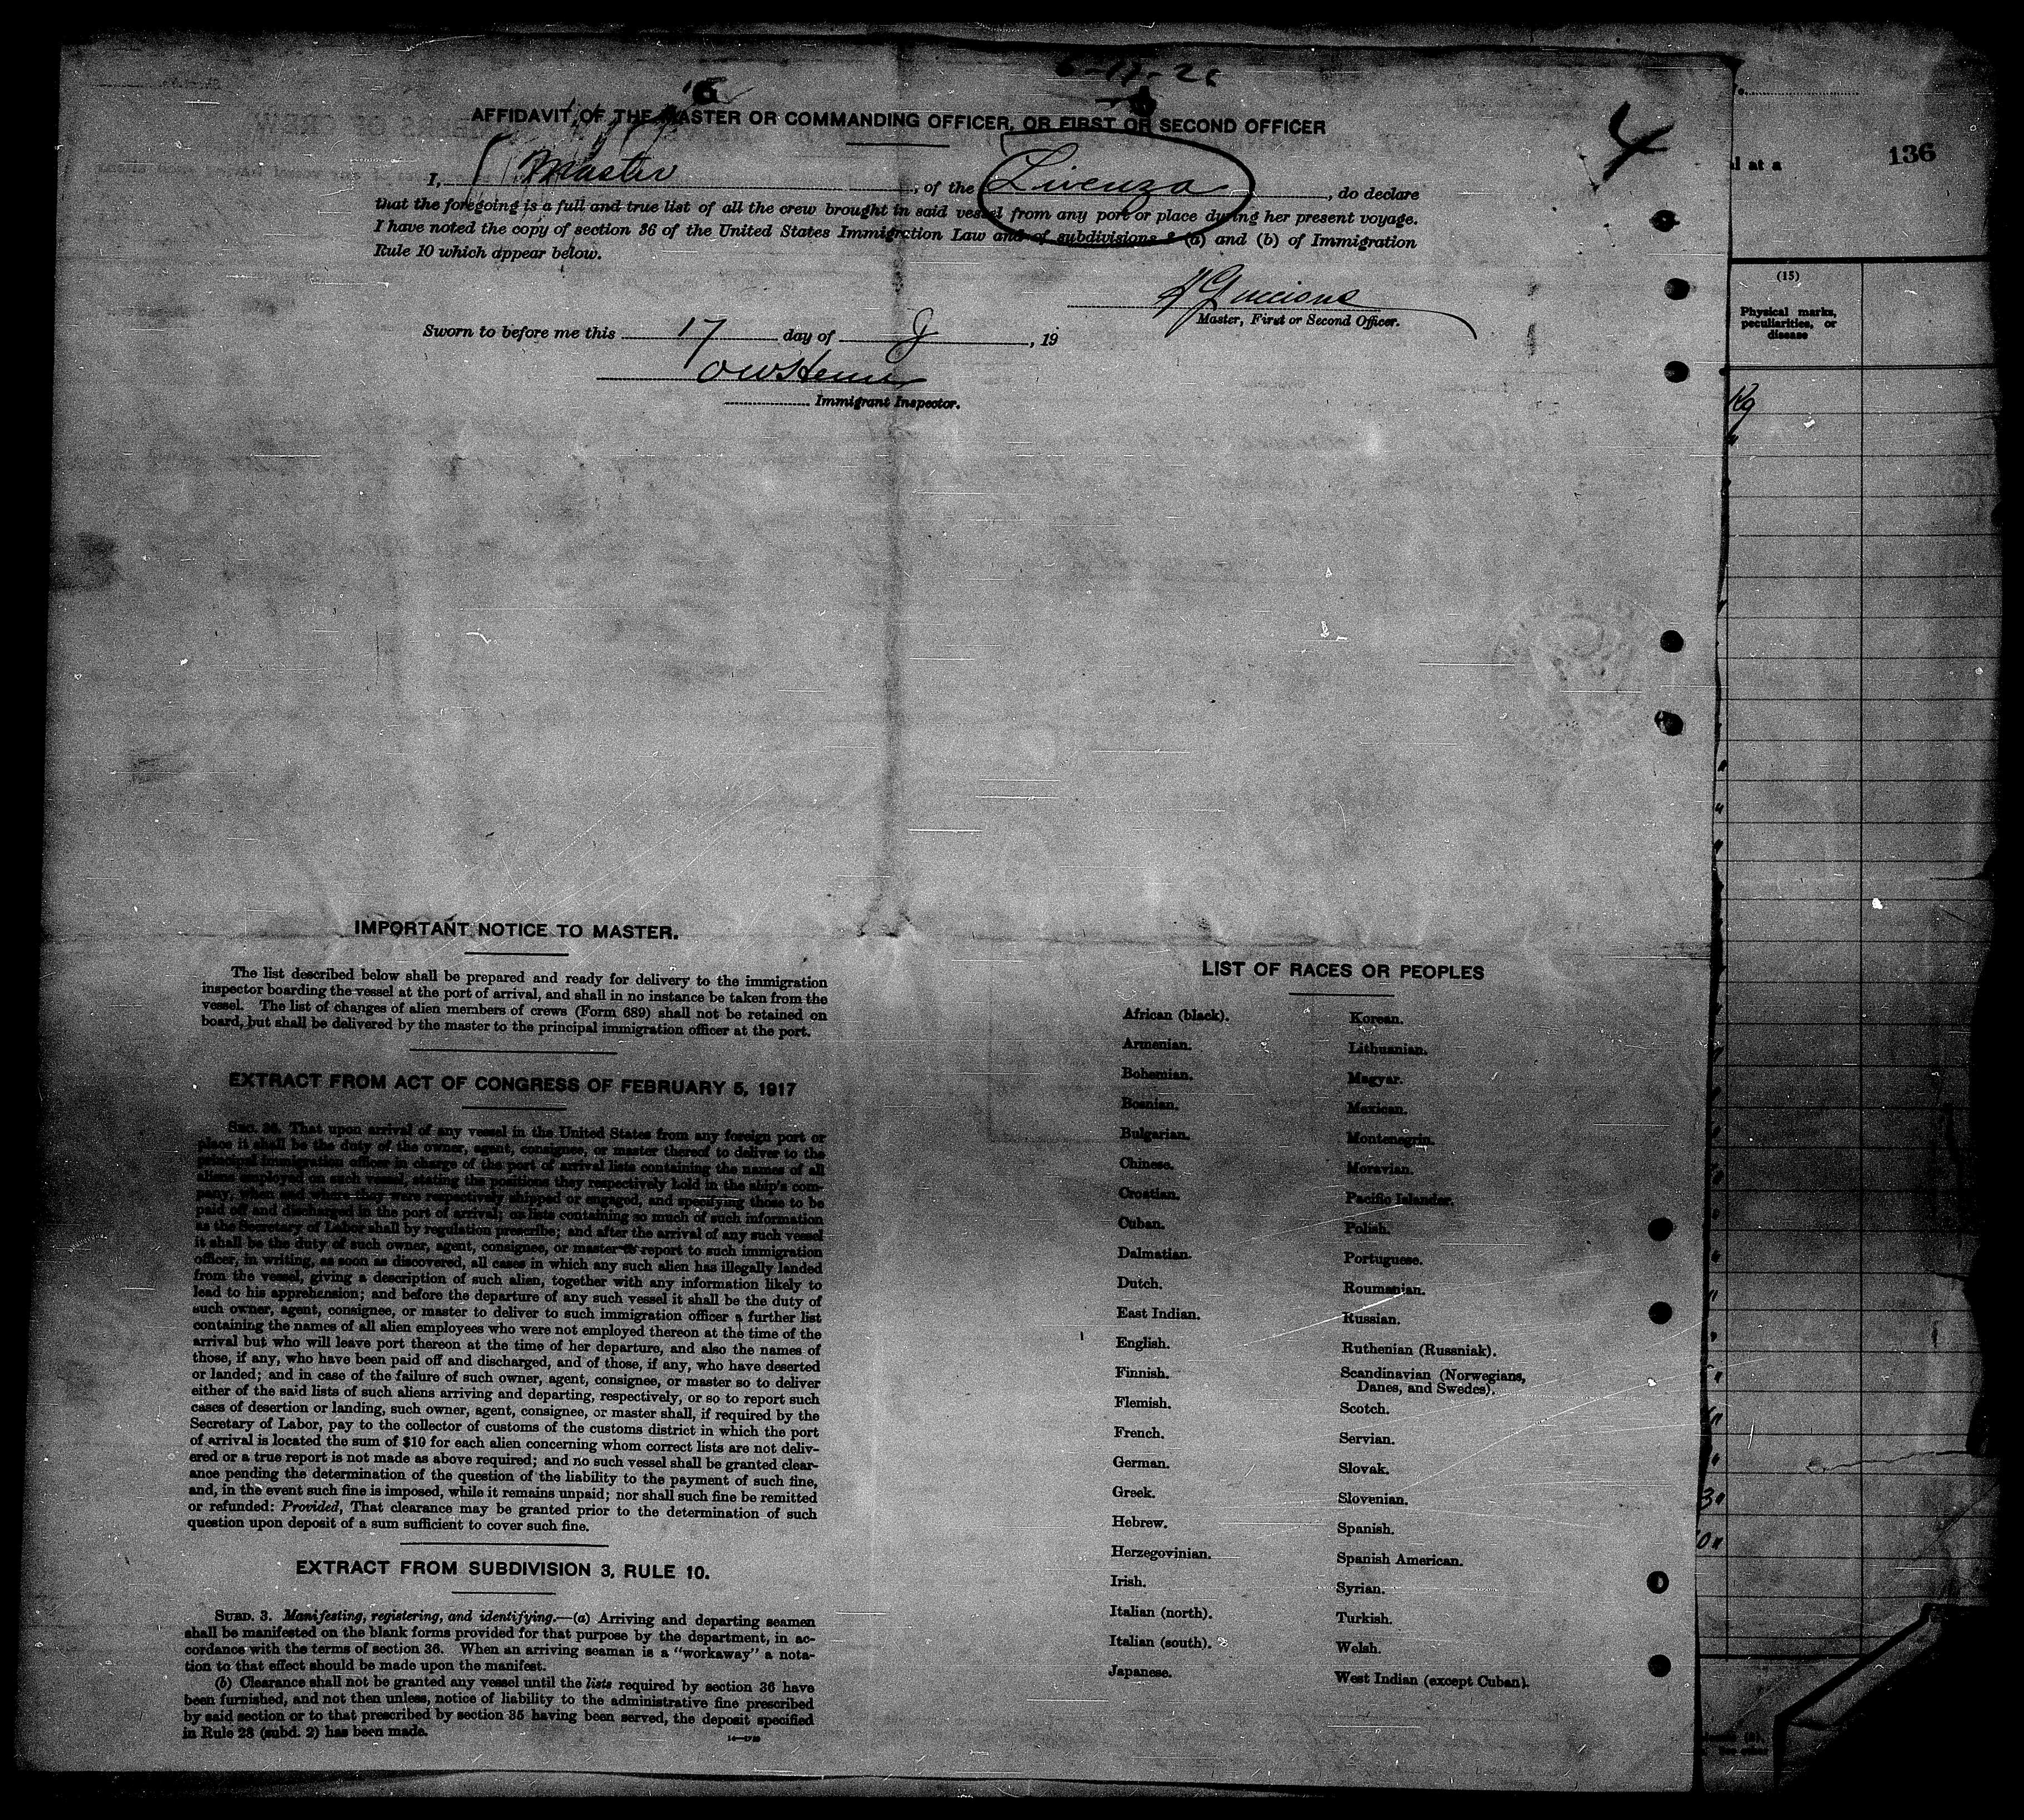 AFFIDAVIT OF THE MASTER OR COMMANDING OFFICER, OR FIRST OR SECOND OFFICER
4
136
I, Master, of the Livenza, do declare
that the foregoing is a full and true list of all the crew brought in said vessel from any port or place during her present voyage.
I have noted the copy of section 36 of the United States Immigration Law and of subdivisions 3 (a) and (b) of Immigration
Rule 10 which appear below.
Master, First or Second Officer.
Sworn to before me this 17 day of J, 19
Immigrant Inspector.
l at a
(15)
Physical marks,
peculiarities, or
disease
Kg
IMPORTANT NOTICE TO MASTER.
The list described below shall be prepared and ready for delivery to the immigration
inspector boarding the vessel at the port of arrival, and shall in no instance be taken from the
vessel. The list of changes of alien members of crews (Form 689) shall not be retained on
board, but shall be delivered by the master to the principal immigration officer at the port.
EXTRACT FROM ACT OF CONGRESS OF FEBRUARY 5, 1917
SEC. 36. That upon arrival of any vessel in the United States from any foreign port or
place it shall be the duty of the owner, agent, consignee, or master thereof to deliver to the
principal immigration officer in charge of the port of arrival lists containing the names of all
aliens employed on such vessel, stating the positions they respectively hold in the ship's com-
pany, when and where they were respectively shipped or engaged, and specifying those to be
paid off and discharged in the port of arrival; or lists containing so much of such information
as the Secretary of Labor shall by regulation prescribe; and after the arrival of any such vessel
it shall be the duty of such owner, agent, consignee, or master to report to such immigration
officer, in writing, as soon as discovered, all cases in which any such alien has illegally landed
from the vessel, giving a description of such alien, together with any information likely to
lead to his apprehension; and before the departure of any such vessel it shall be the duty of
such owner, agent, consignee, or master to deliver to such immigration officer a further list
containing the names of all alien employees who were not employed thereon at the time of the
arrival but who will leave port thereon at the time of her departure, and also the names of
those, if any, who have been paid off and discharged, and of those, if any, who have deserted
or landed; and in case of the failure of such owner, agent, consignee, or master so to deliver
either of the said lists of such aliens arriving and departing, respectively, or so to report such
cases of desertion or landing, such owner, agent, consignee, or master shall, if required by the
Secretary of Labor, pay to the collector of customs of the customs district in which the port
of arrival is located the sum of $10 for each alien concerning whom correct lists are not deliv-
ered or a true report is not made as above required; and no such vessel shall be granted clear-
ance pending the determination of the question of the liability to the payment of such fine,
and, in the event such fine is imposed, while it remains unpaid; nor shall such fine be remitted
or refunded: Provided, That clearance may be granted prior to the determination of such
question upon deposit of a sum sufficient to cover such fine.
EXTRACT FROM SUBDIVISION 3, RULE 10.
SUBD. 3. Manifesting, registering, and identifying.—(a) Arriving and departing seamen
shall be manifested on the blank forms provided for that purpose by the department, in ac-
cordance with the terms of section 36. When an arriving seaman is a "workaway" a nota-
tion to that effect should be made upon the manifest.
(b) Clearance shall not be granted any vessel until the lists required by section 36 have
been furnished, and not then unless, notice of liability to the administrative fine prescribed
by said section or to that prescribed by section 35 having been served, the deposit specified
in Rule 28 (subd. 2) has been made.
LIST OF RACES OR PEOPLES
African (black).
Armenian.
Bohemian.
Bosnian.
Bulgarian.
Chinese.
Croatian.
Cuban.
Dalmatian.
Dutch.
East Indian.
English.
Finnish.
Flemish.
French.
German.
Greek.
Hebrew.
Herzegovinian.
Irish.
Italian (north).
Italian (south).
Japanese.
Korean.
Lithuanian.
Magyar.
Mexican.
Montenegrin.
Moravian.
Pacific Islander.
Polish.
Portuguese.
Roumanian.
Russian.
Ruthenian (Russniak).
Scandinavian (Norwegians,
Danes, and Swedes).
Scotch.
Servian.
Slovak.
Slovenian.
Spanish.
Spanish American.
Syrian.
Turkish.
Welsh.
West Indian (except Cuban).